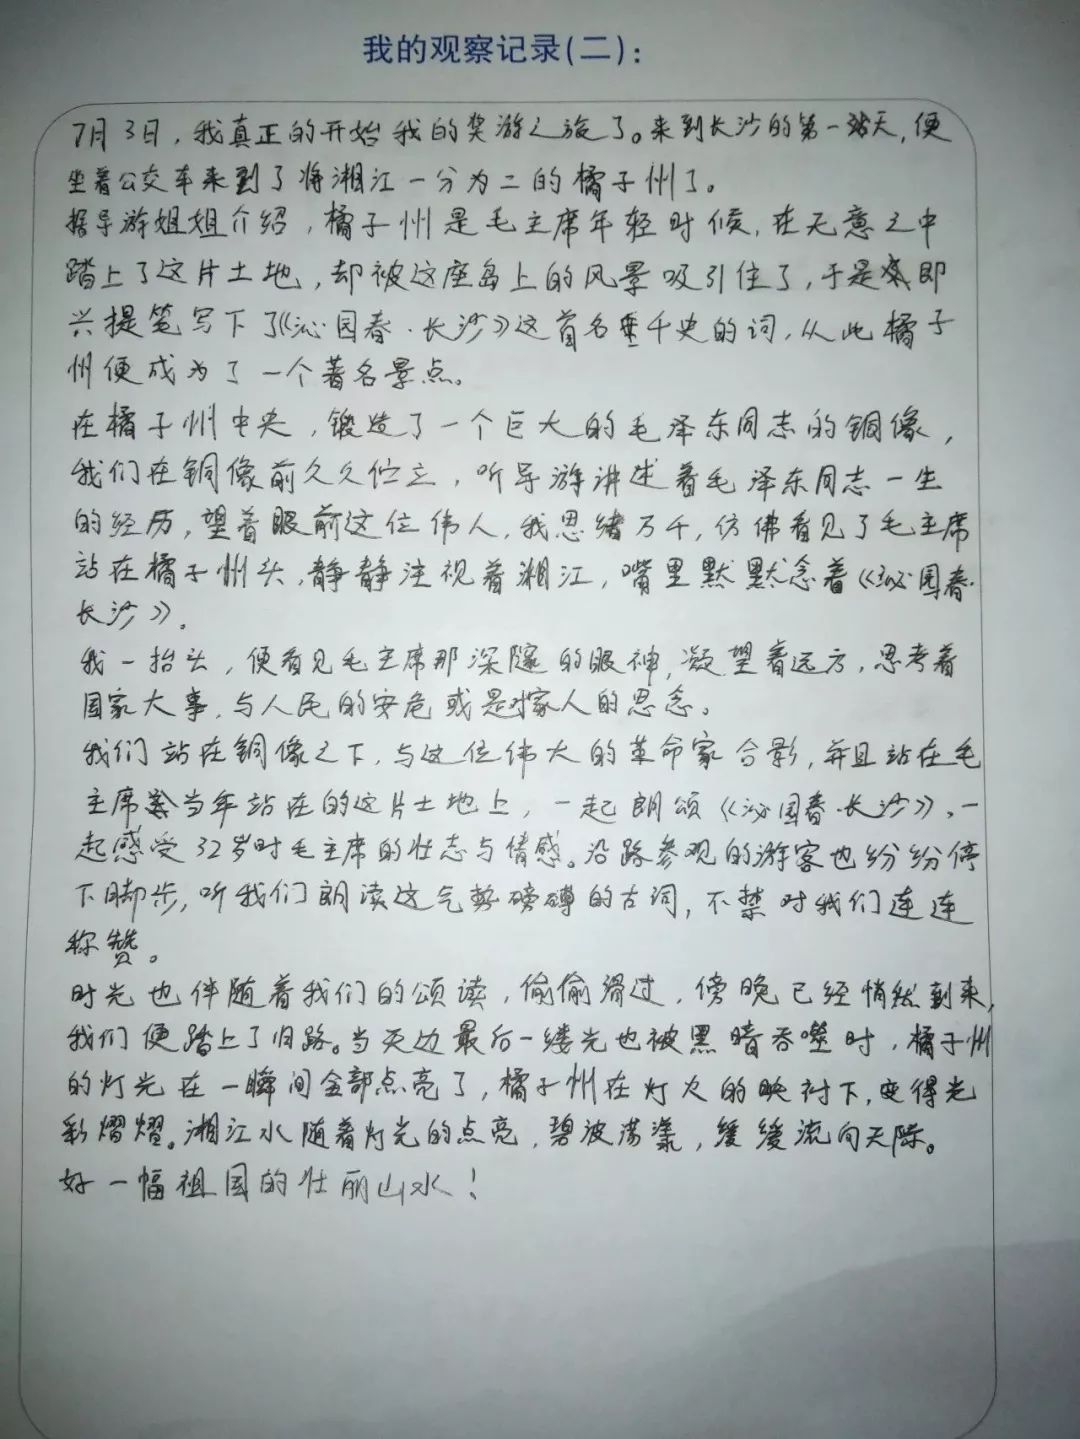 我的观察记录(二):
7月3日，我真正的开始我的奖游之旅了。来到长沙的第一站天，便
坐着公交车来到了将湘江一分为二的橘子州了。
据导游姐姐介绍，橘子州是毛主席年轻时候，在无意之中
踏上了这片土地，却被这座岛上的风景吸引住了，于是即
兴提笔写下了《沁园春·长沙》这首名垂千史的词，从此橘子
州便成为了一个著名景点。
在橘子州中央，锻造了一个巨大的毛泽东同志的铜像，
我们在铜像前久久伫立，听导游讲述着毛泽东同志一生
的经历，望着眼前这位伟人，我思绪万千，仿佛看见了毛主席
站在橘子州头，静静注视着湘江，嘴里默默念着《沁园春·
长沙》。
我一抬头，便看见毛主席那深邃的眼神，凝望着远方，思考着
国家大事，与人民的安危或是对家人的思念。
我们站在铜像之下，与这位伟大的革命家合影，并且站在毛
主席当年站在的这片土地上，一起朗颂《沁园春·长沙》，一
起感受32岁时毛主席的壮志与情感。沿路参观的游客也纷纷停
下脚步，听我们朗读这气势磅礴的古词，不禁对我们连连
称赞。
时光也伴随着我们的颂读，偷偷滑过，傍晚已经悄然到来，
我们便踏上了归路。当天边最后一缕光也被黑暗吞噬时，橘子州
的灯光在一瞬间全部点亮了，橘子州在灯火的映衬下，变得光
彩熠熠。湘江水随着灯光的点亮，碧波荡漾，缓缓流向天际。
好一幅祖国的壮丽山水！